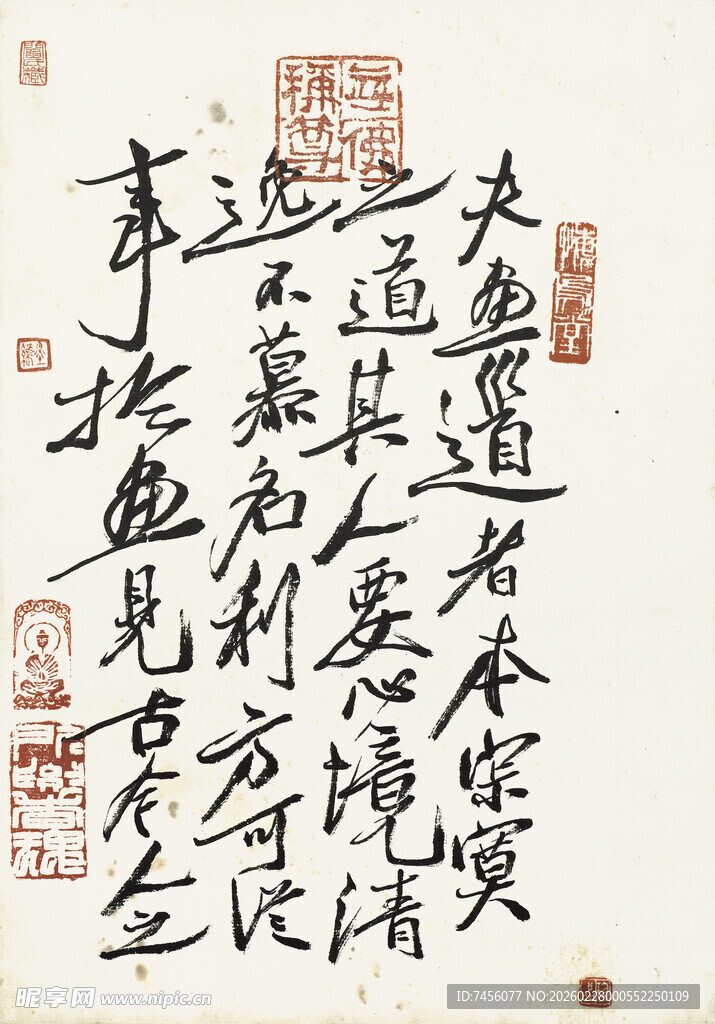 無佛稱尊
悔烏堂
夫畫道者本寂寞
之道其人要心境清
逸不慕名利方可從
事於畫見古今人之
昵享网 www.nipic.cn
ID:7456077 NO:20260228000552250109